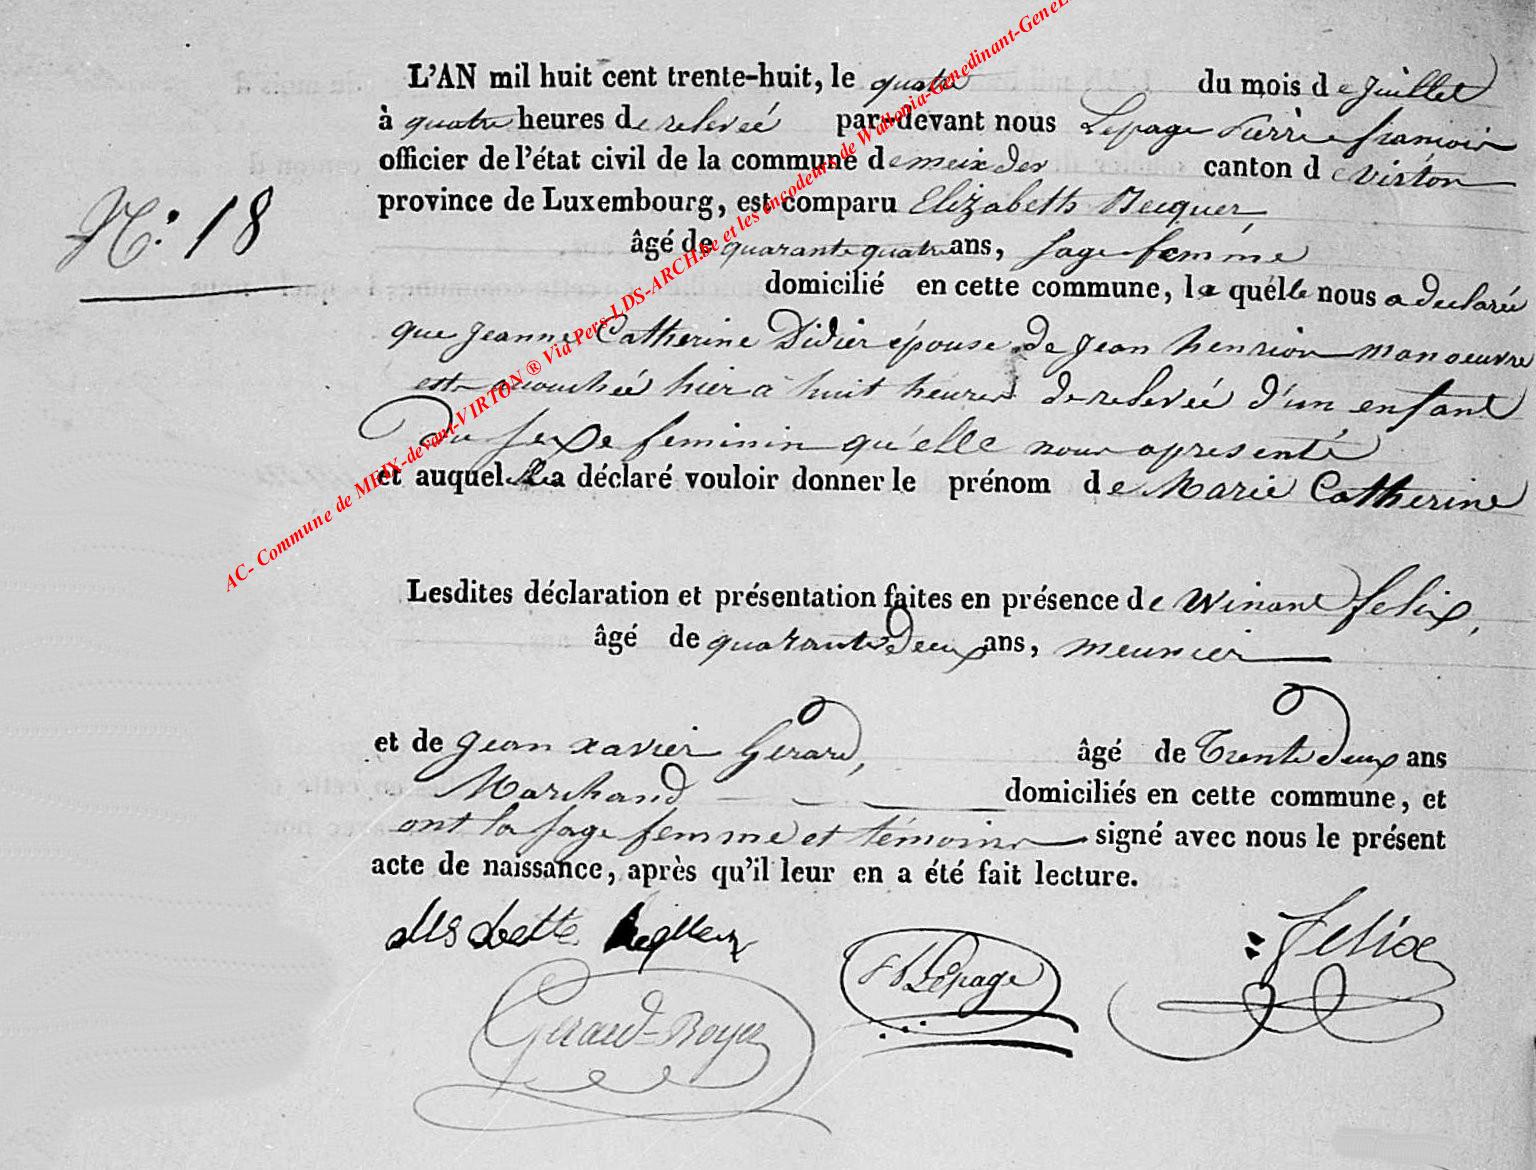 L'AN mil huit cent trente-huit, le quatre du mois de juillet
à quatre heures de relevée par-devant nous Lepage Pierre françois
officier de l'état civil de la commune de meix der canton de virton
N.° 18
province de Luxembourg, est comparu Elizabeth Becquer
âgé de quarante quatre ans, sage femme
domicilié en cette commune, la quélle nous a declarée
que jeanne Catherine Didier épouse de jean henrion manoeuvre
est acouchée hier à huit heures de relevée d'un enfant
du sexe feminin qu'elle nous a presenté
et auquel elle a déclaré vouloir donner le prénom de Marie Catherine
Lesdites déclaration et présentation faites en présence de Winant felix,
âgé de quarante deux ans, meunier
et de jean xavier Gerard, âgé de Trente deux ans
Marchand domiciliés en cette commune, et
ont la sage femme et témoins signé avec nous le présent
acte de naissance, après qu'il leur en a été fait lecture.
felix
Lepage
Gerard-Boyer
AC- Commune de MEIX-devant-VIRTON ® Via Pers LDS-ARCH.be et les encodeurs de Wallonia-Genedinant-GeneL